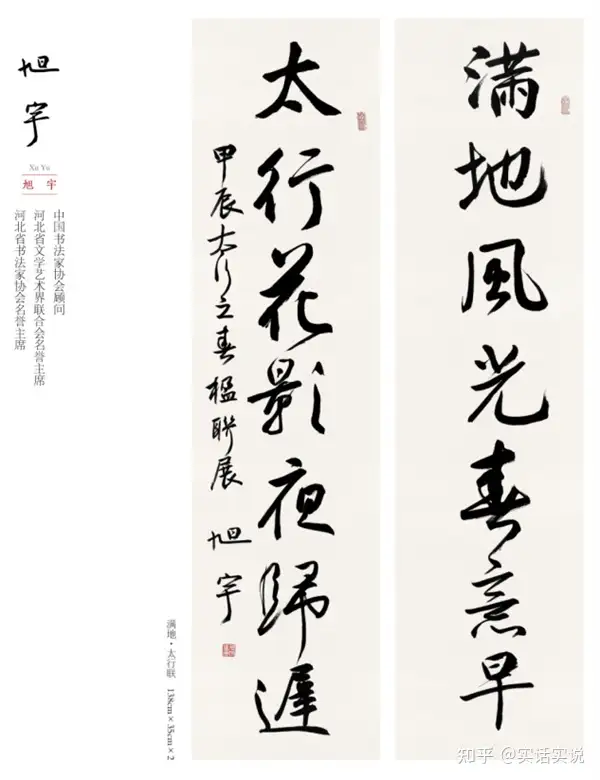 滿地風光春意早
太行花影夜歸遲
甲辰太行之春楹聯展 旭宇
旭宇
Xu Yu
旭 宇
中国书法家协会顾问
河北省文学艺术界联合会名誉主席
河北省书法家协会名誉主席
满地·太行联 138cm×35cm×2
知乎 @实话实说